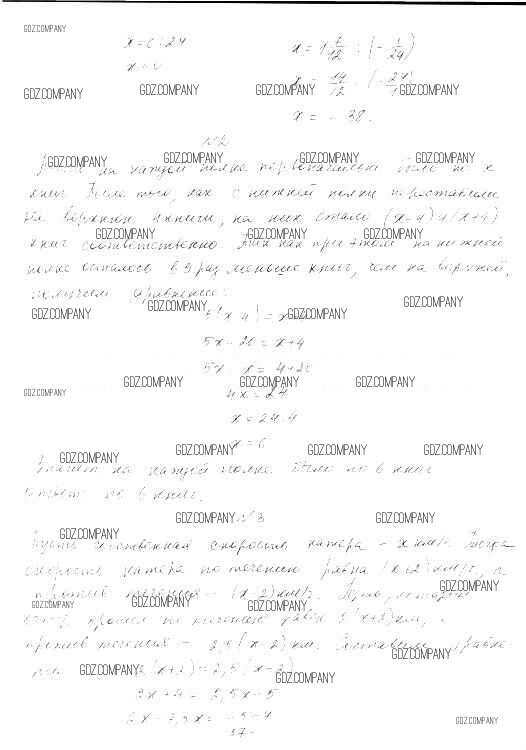 GDZ.COMPANY
x = 0:24
x = 0
GDZ.COMPANY GDZ.COMPANY GDZ.COMPANY GDZ.COMPANY
x = - 38.
№2
GDZ.COMPANY GDZ.COMPANY GDZ.COMPANY GDZ.COMPANY
на каждой полке первоначально было по x
книг. После того, как с нижней полки переставили
на верхнюю 4 книги, на них стало (x-4) и (x+4)
GDZ.COMPANY GDZ.COMPANY GDZ.COMPANY
книг соответственно. Так как при этом на нижней
полке осталось в 5 раз меньше книг, чем на верхней,
получаем уравнение:
GDZ.COMPANY GDZ.COMPANY GDZ.COMPANY
5x - 20 = x + 4
5x - x = 4 + 20
GDZ.COMPANY GDZ.COMPANY GDZ.COMPANY GDZ.COMPANY
4x = 24
x = 24:4
x = 6
GDZ.COMPANY GDZ.COMPANY GDZ.COMPANY GDZ.COMPANY
Значит на каждой полке было по 6 книг
Ответ: по 6 книг.
GDZ.COMPANY №3 GDZ.COMPANY
GDZ.COMPANY
Пусть собственная скорость катера - x км/ч. Тогда
скорость катера по течению равна (x+2) км/ч, а
GDZ.COMPANY
против течения - (x-2) км/ч.
GDZ.COMPANY GDZ.COMPANY GDZ.COMPANY
против течения - 2,5(x-2) км. Составим уравне-
GDZ.COMPANY
GDZ.COMPANY (x+2) = 2,5(x-2)
GDZ.COMPANY
2x + 4 = 2,5x - 5
2x - 2,5x = -5 - 4
GDZ.COMPANY